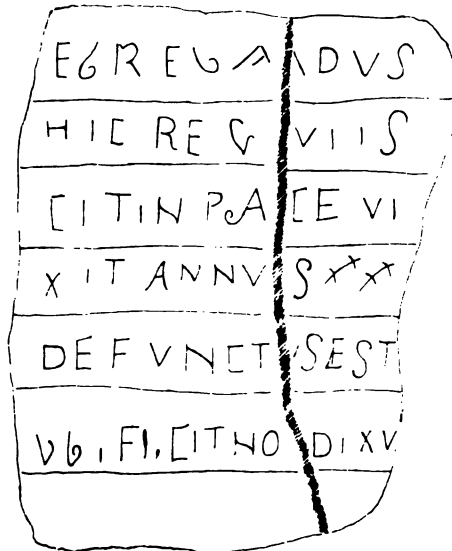 EBREGAVDVS
HIC REQVIIS
CIT IN PACE VI
XIT ANNVS XXX
DEFVNCTVS EST
VBI FICIT NO DI XV